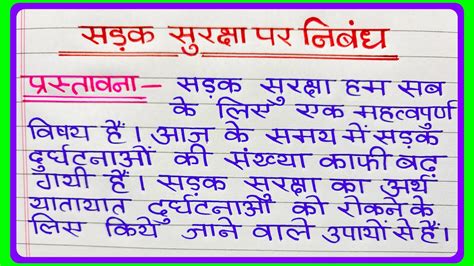 सड़क सुरक्षा पर निबंध
प्रस्तावना – सड़क सुरक्षा हम सब
के लिए एक महत्वपुर्ण
विषय हैं। आज के समय में सड़क
दुर्घटनाओं की संख्या काफी बढ़
गयी हैं। सड़क सुरक्षा का अर्थ
यातायात दुर्घटनाओं को रोकने के
लिए किये जाने वाले उपायों से हैं।